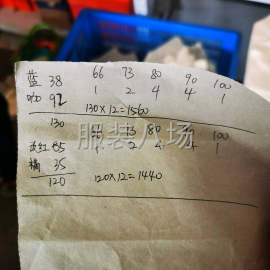 蓝 38 66 73 80 90 100
咖 92 1 2 4 4 1
130 130×12=1560
66 73 80 90 100
红 85 1 2 4 4 1
橘 35
120 120×12=1440
服装人场